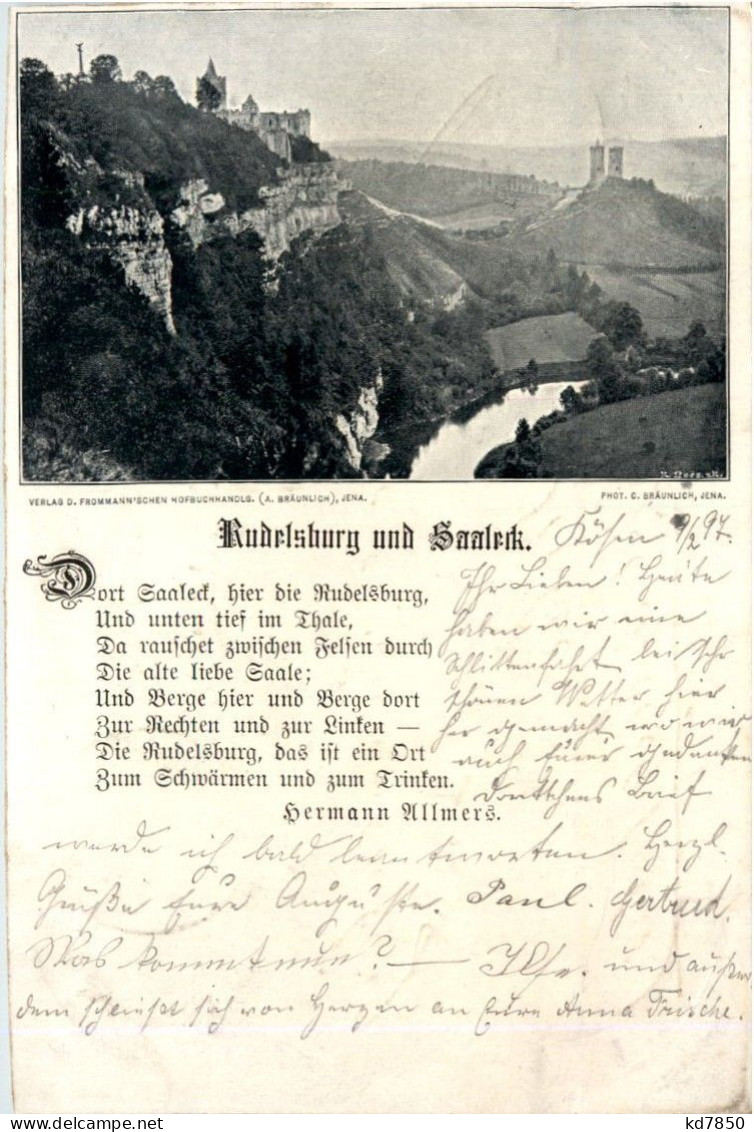 VERLAG D. FROMMANN'SCHEN HOFBUCHHANDLG. (A. BRÄUNLICH), JENA.
PHOT. C. BRÄUNLICH, JENA.
Rudelsburg und Saaleck.
Kösen 9/2 97.
Dort Saaleck, hier die Rudelsburg,
Und unten tief im Thale,
Da rauschet zwischen Felsen durch
Die alte liebe Saale;
Und Berge hier und Berge dort
Zur Rechten und zur Linken —
Die Rudelsburg, das ist ein Ort
Zum Schwärmen und zum Trinken.
Hermann Allmers.
Ihr Lieben! Heute
haben wir eine
Schlittenfahrt bei sehr
schönem Wetter hier
her gemacht, wo wir
auch Eurer gedenken
Dorttchens Brief
werde ich bald beantworten. Herzl.
Grüße Eure Auguste. Paul. Gertrud.
Was kommt nun? — Ilse. und außer
dem schließt sich von Herzen an Eure Anna Frische.
kd7850